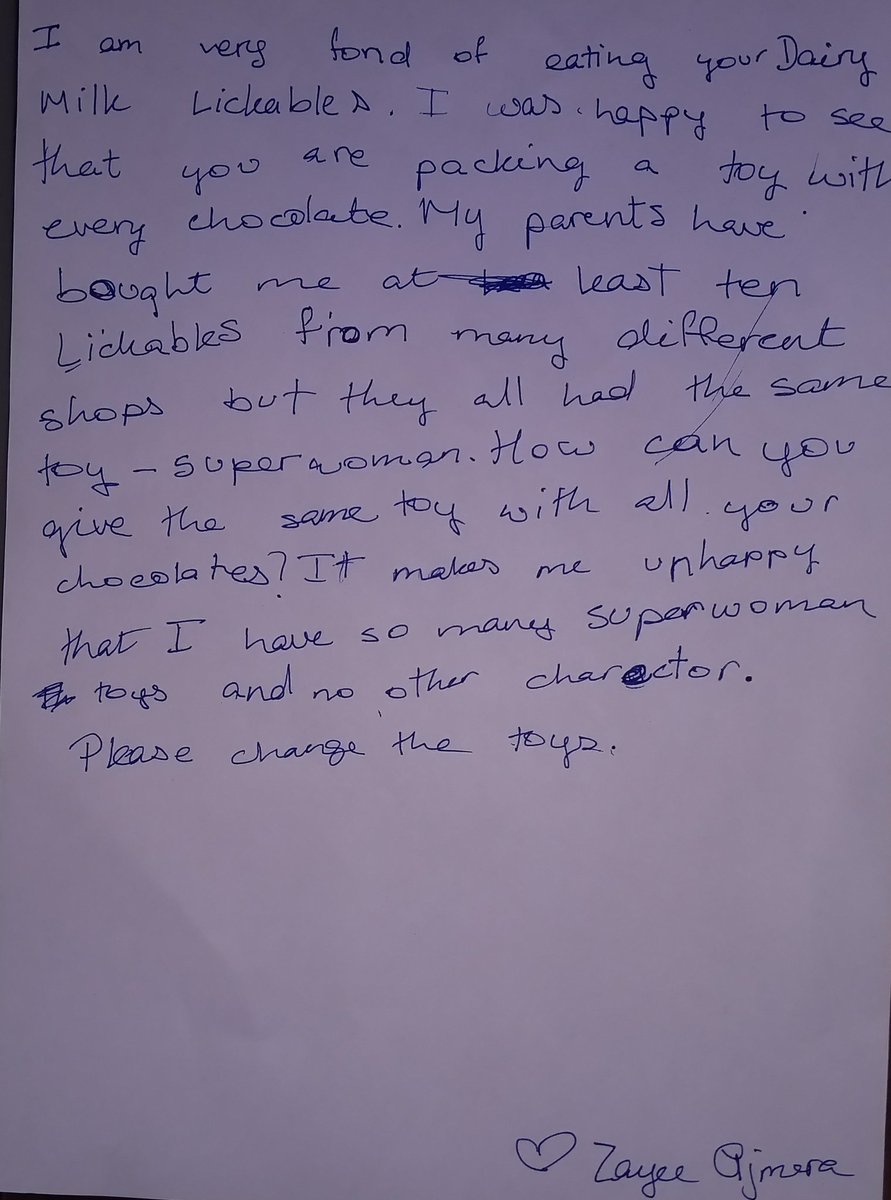 I am very fond of eating your Dairy
Milk Lickables. I was happy to see
that you are packing a toy with
every chocolate. My parents have
bought me at least ten
Lickables from many different
shops but they all had the same
toy - superwoman. How can you
give the same toy with all your
chocolates? It makes me unhappy
that I have so many superwoman
toys and no other charector.
Please change the toys.
♡ Zayee Ajmera